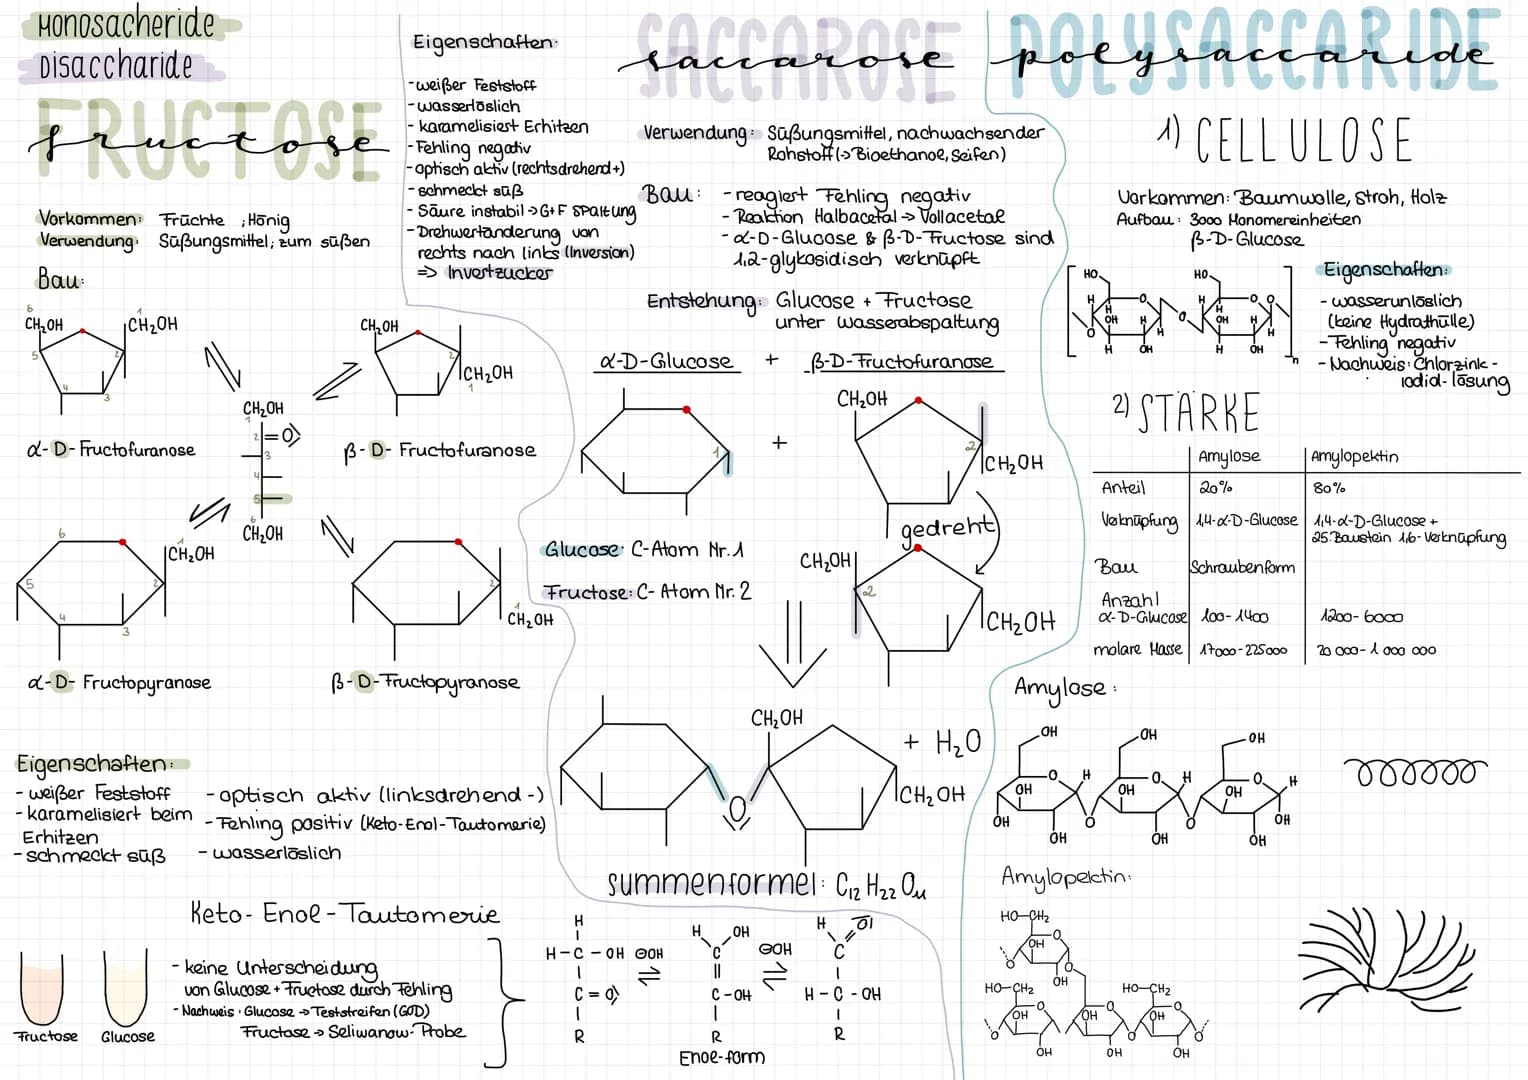 Monosacheride
Disaccharide
FRUCTOSE
fructose
Vorkommen: Früchte ; Honig
Verwendung: Süßungsmittel; zum süßen
Bau:
6
CH₂OH
1
CH₂OH
5
2
4
3
α-D-Fructofuranose
CH₂OH
2
CH₂OH
1
β-D-Fructofuranose
CH₂OH
1
2
=O
3
4
5
6
CH₂OH
6
1
CH₂OH
5
2
4
3
α-D-Fructopyranose
2
1
CH₂OH
β-D-Fructopyranose
Eigenschaften:
- weißer Feststoff
- karamelisiert beim
Erhitzen
- schmeckt süß
- optisch aktiv (linksdrehend -)
- Fehling positiv (Keto-Enol-Tautomerie)
- wasserlöslich
Keto-Enol-Tautomerie
Fructose
Glucose
- keine Unterscheidung
von Glucose + Fructose durch Fehling
- Nachweis: Glucose → Teststreifen (GOD)
Fructose → Seliwanow-Probe
H
H-C-OH
C=O
R
⊖OH
⇌
H OH
C
C-OH
R
Enol-form
⊖OH
⇌
H O
C
H-C-OH
R
Eigenschaften:
- weißer Feststoff
- wasserlöslich
- karamelisiert Erhitzen
- Fehling negativ
- optisch aktiv (rechtsdrehend +)
- schmeckt süß
- Säure instabil → G+F Spaltung
- Drehwertänderung von
rechts nach links (Inversion)
⇒ Invertzucker
SACCAROSE
saccarose
Verwendung: Süßungsmittel, nachwachsender
Rohstoff (→ Bioethanol, Seifen)
Bau: - reagiert Fehling negativ
- Reaktion Halbacetal → Vollacetal
- α-D-Glucose & β-D-Fructose sind
1,2-glykosidisch verknüpft
Entstehung: Glucose + Fructose
unter Wasserabspaltung
α-D-Glucose + β-D-Fructofuranose
1
+
CH₂OH
2
CH₂OH
gedreht
Glucose: C-Atom Nr. 1
Fructose: C-Atom Nr. 2
CH₂OH
2
CH₂OH
CH₂OH
O
CH₂OH
+ H₂O
Summenformel: C₁₂H₂₂O₁₁
POLYSACCARIDE
polysaccaride
1) CELLULOSE
Vorkommen: Baumwolle, Stroh, Holz
Aufbau: 3000 Monomereinheiten
β-D-Glucose
HO
H
H
OH
H
O
H
H
OH
O
HO
H
H
OH
H
O
O
H
H
OH
n
Eigenschaften:
- wasserunlöslich
(keine Hydrathülle)
- Fehling negativ
- Nachweis: Chlorzink-
iodid-lösung
2) STÄRKE
Amylose Amylopektin
Anteil 20% 80%
Verknüpfung 1,4-α-D-Glucose 1,4-α-D-Glucose +
25. Baustein 1,6-Verknüpfung
Bau Schraubenform
Anzahl
α-D-Glucose 100-1400 1200-6000
molare Masse 17000-225000 20 000-1 000 000
Amylose:
OH
O
H
OH
OH
OH
O
OH
O
H
OH
OH
O
OH
O
H
OH
OH
OH
Amylopektin:
HO-CH₂
O
OH
O
OH
O
HO-CH₂
O
OH
O
OH
O
O
OH
OH
HO-CH₂
O
OH
O
OH
O